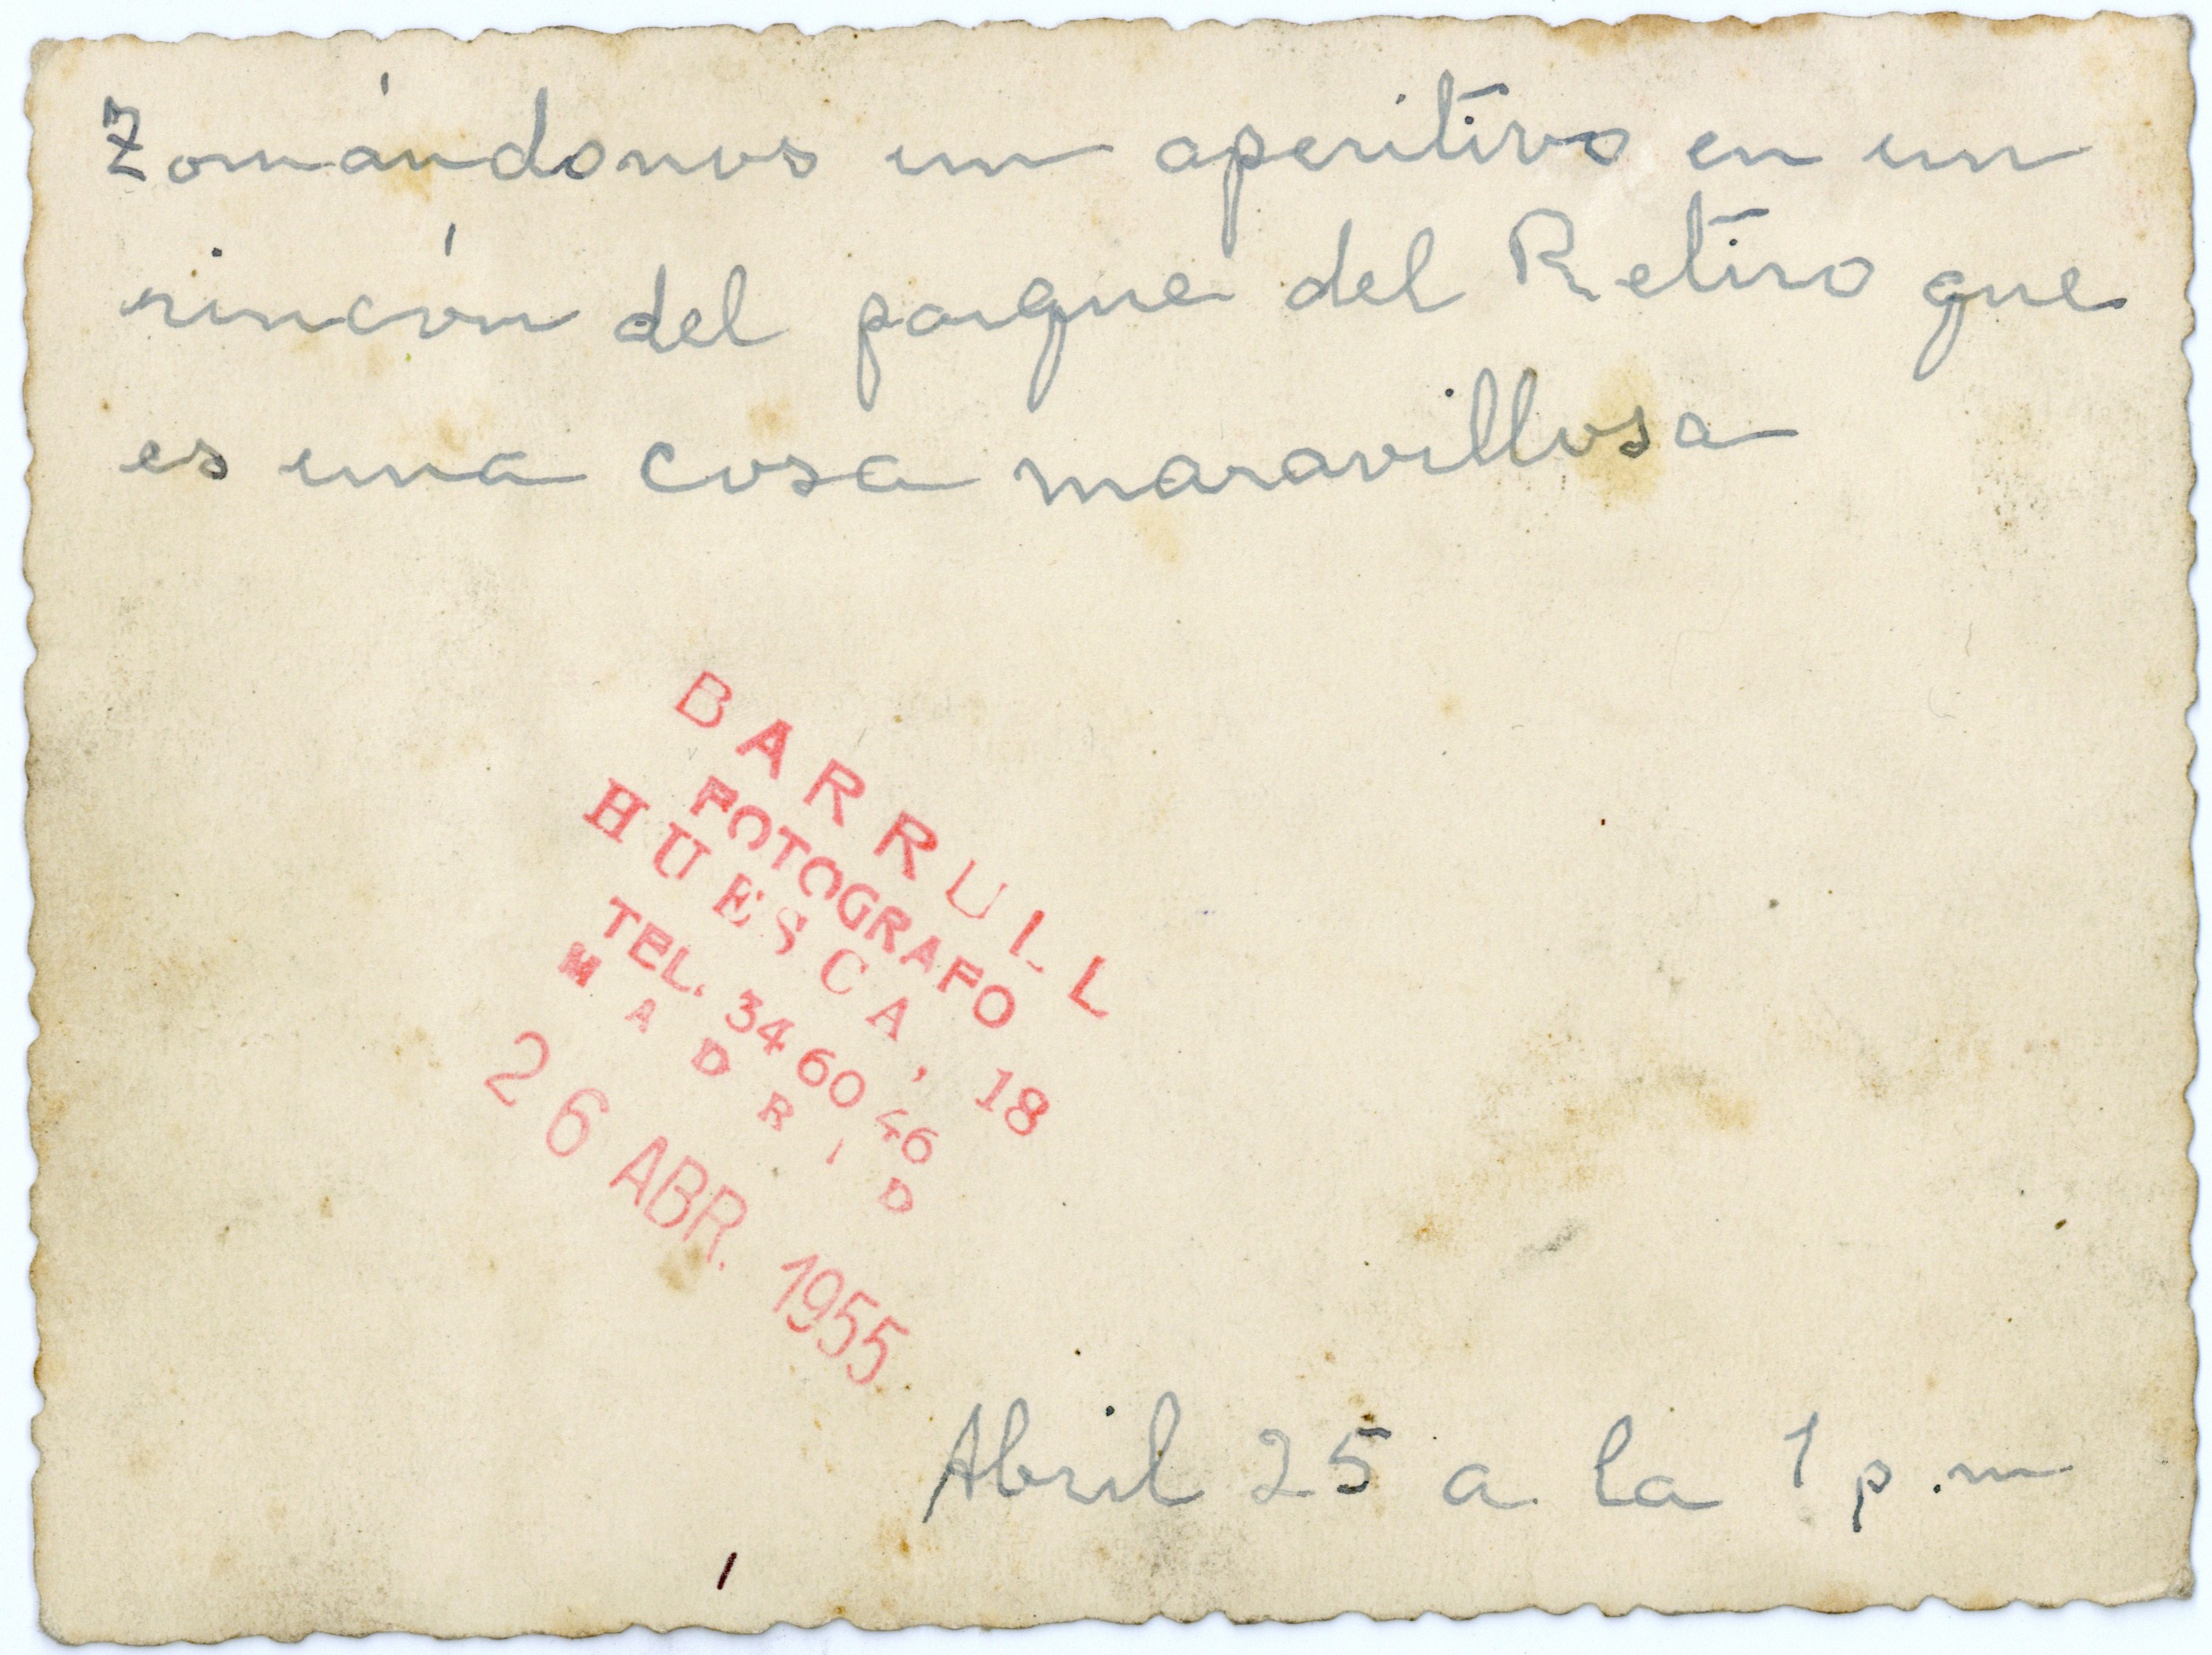 Tomándonos un aperitivo en un
rincón del parque del Retiro que
es una cosa maravillosa
BARRULL
FOTOGRAFO
HUESCA, 18
TEL. 34 60 46
MADRID
26 ABR. 1955
Abril 25 a la 1 p.m